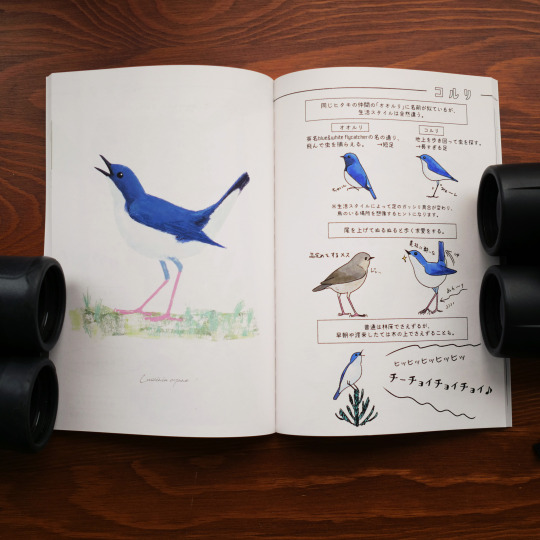 コルリ
同じヒタキの仲間の「オオルリ」に名前が似ているが、
生活スタイルは全然違う。
オオルリ
英名blue&white flycatcherの名の通り、
飛んで虫を捕らえる。 →短足
コルリ
地上を歩き回って虫を探す。
→長すぎる足
※生活スタイルによって足のガッシリ具合が変わり、
鳥のいる場所を想像するヒントになります。
尾を上げてぬるぬると歩く求愛をする。
品定めをするメス
じーっ
普通は林床でさえずるが、
早朝や渡来したては木の上でさえずることも。
ヒッヒッヒッヒッヒッ
チーチョイチョイチョイ♪